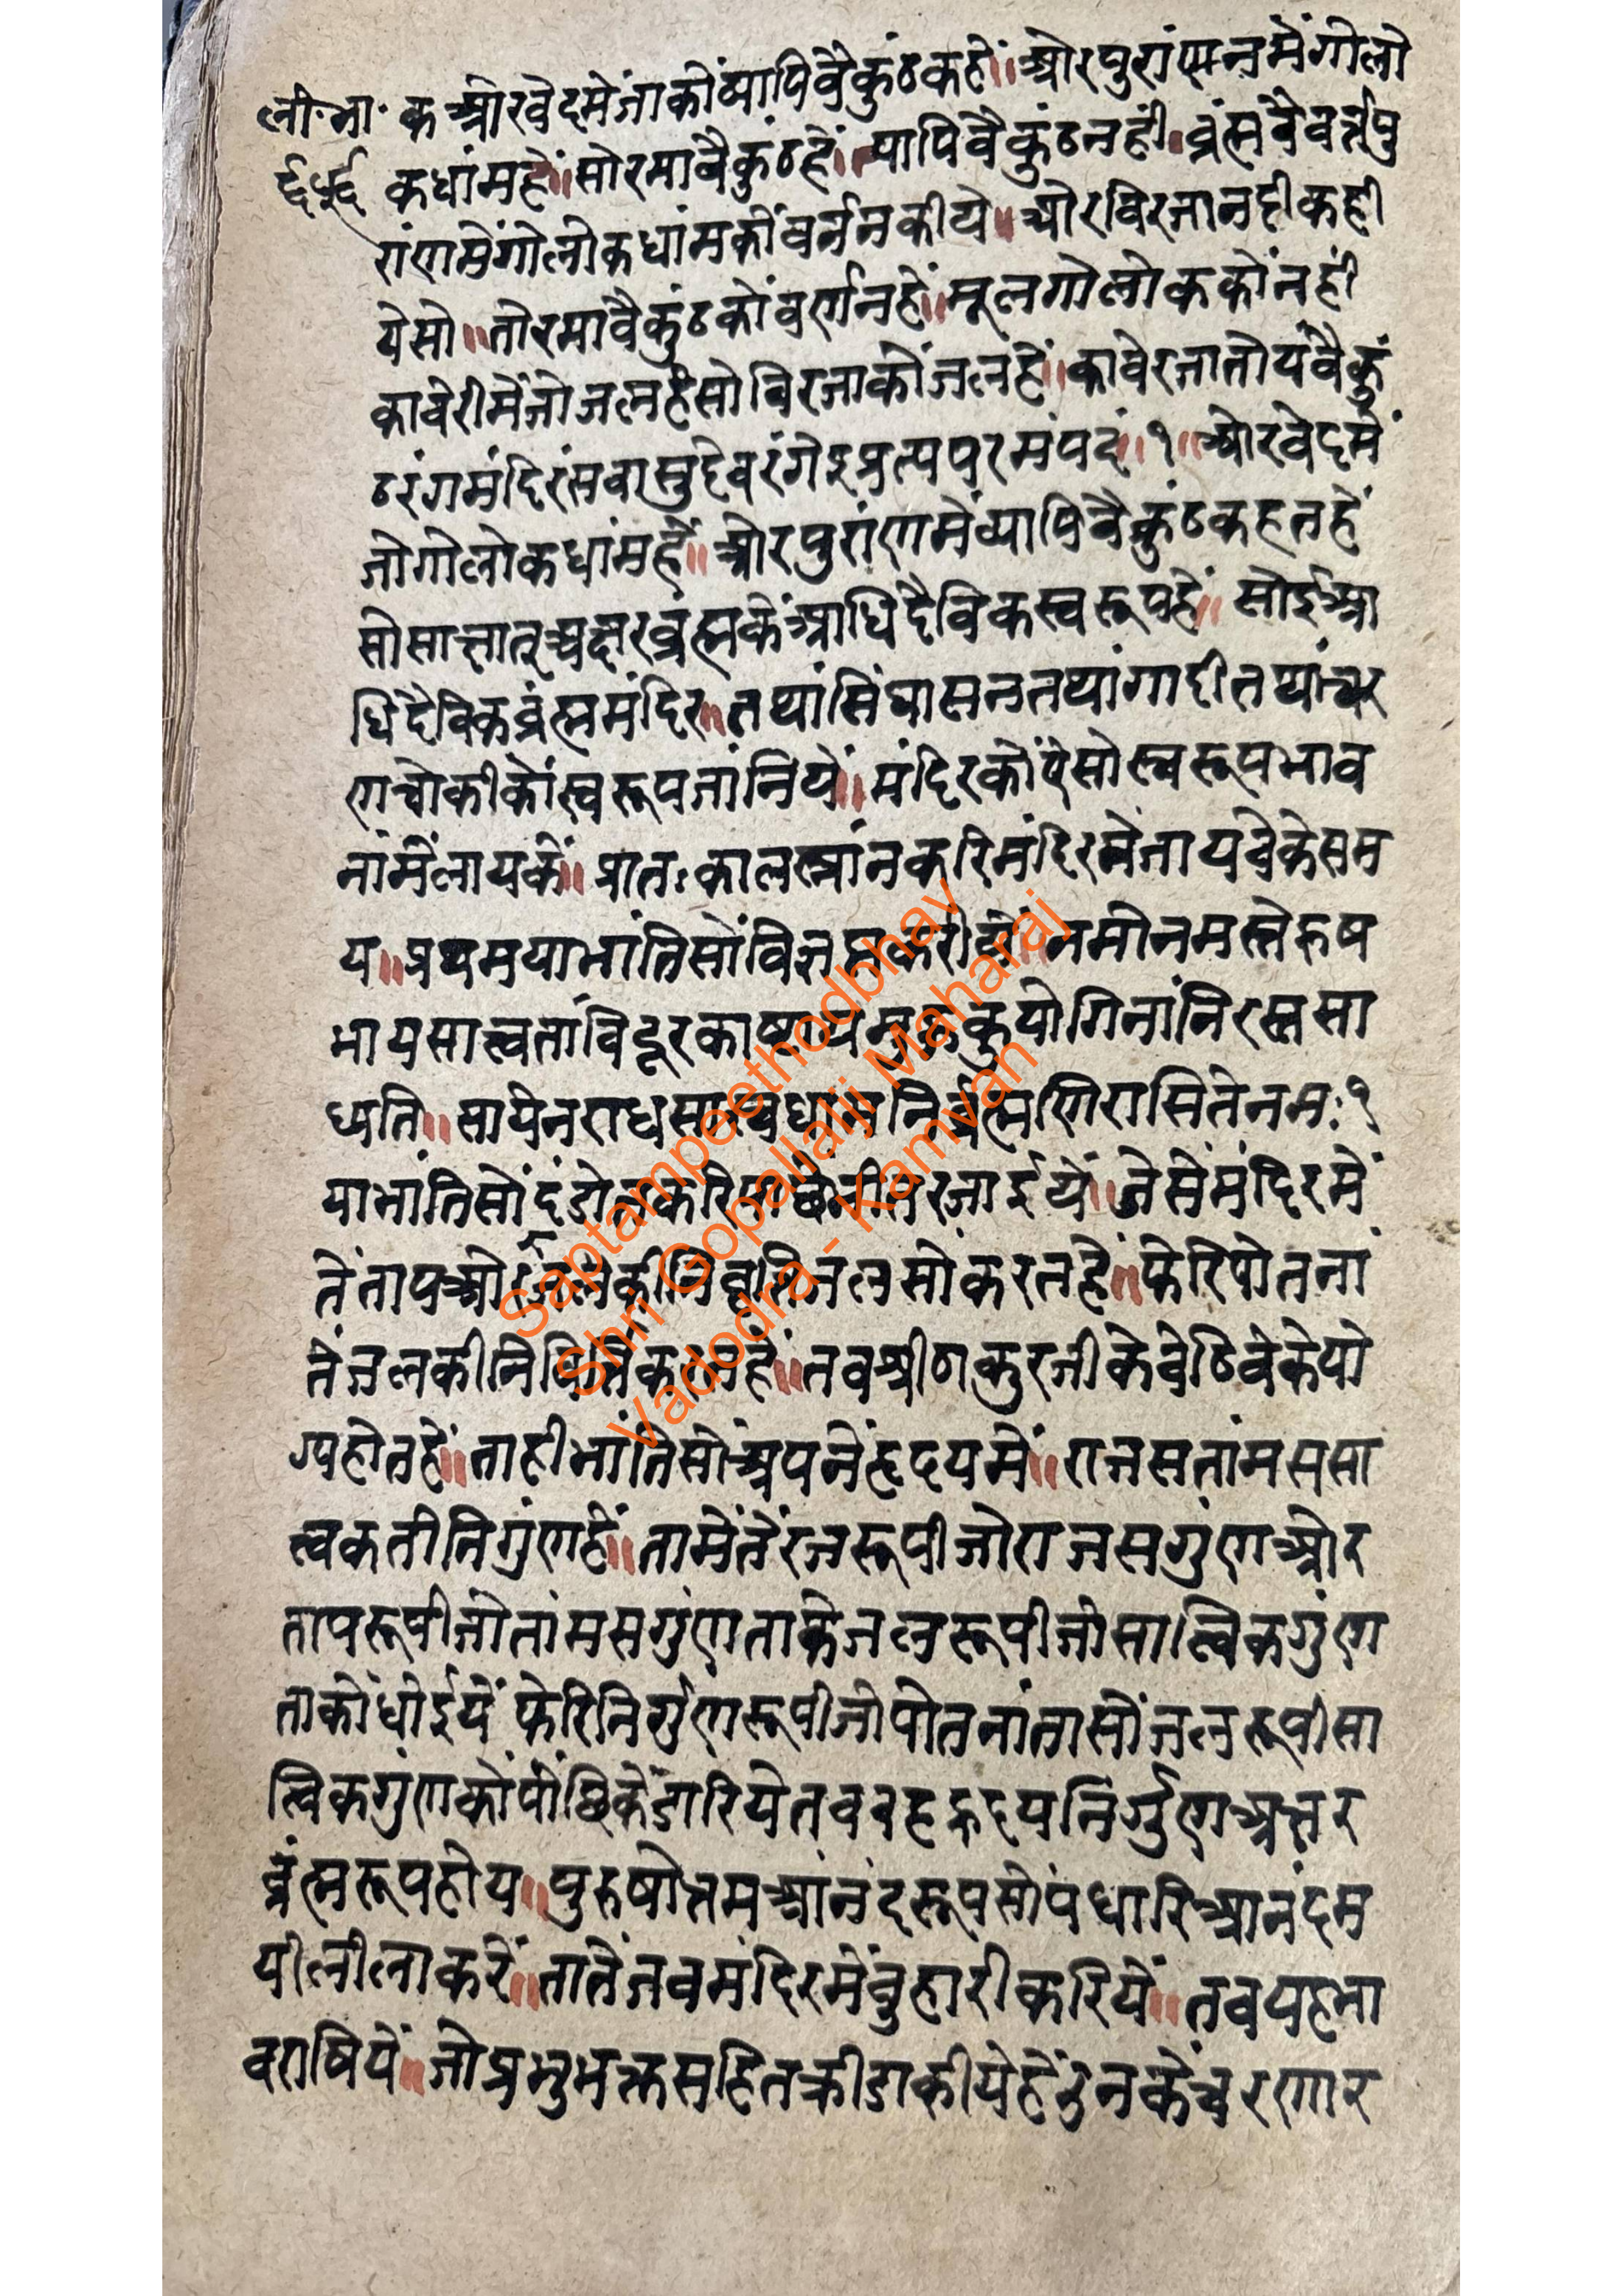 ली.भा. क और वेदमें जाकों व्यापिवैकुंठ कहें॥ ओर पुरांणनमें गोलो
क धांम हें॥ सो रमावैकुंठ हें॥ व्यापिवैकुंठ नहीं॥ ब्रंह्मवैवर्त्त पु
रांणमें गोलोक धांमकों वर्नन कीये॥ ओर विरजा नदी कही
ये सो॥ तो रमावैकुंठ कों वर्णन हें॥ मूल गोलोक कों नहीं
कावेरीमें जो जल हें सो विरजाकों जल हें॥ कावेरजातोयंवैकुं
ठरंगमंदिरं सवासुदेवरंगेशप्रत्यपरमंपदं॥१॥ ओर वेदमें
जो गोलोक धांम हें॥ ओर पुरांणमें व्यापिवैकुंठ कहत हें
सो साक्षात् अक्षर ब्रह्मके आधिदैविक स्वरूप हें॥ सोई आ
धिदैविक ब्रंह्म मंदिर॥ तथां सिंघासन तथां गादी तथां चर
ण चोकीकों स्वरूप जांनियें॥ मंदिर कों ऐसो स्वरूप भाव
नांमें लायकें॥ प्रातःकाल स्नांन करि मंदिरमें जायवेके सम
य॥ प्रथम या भांतिसों विज्ञप्त करीकें॥ नमोनमस्तेरुष
भायसात्त्वतां विदूरकाष्टाय मुहुकुयोगिनां निरस्तसा
म्यति॥ सायेनराधसास्वधामनिब्रंह्मणिरासितेनमः१
या भांतिसों दंडोत करि पाछें भीतर जाईयें॥ जेसें मंदिरमें
तें ताप ओर जलकी निवृत्ति जलसों करत हें॥ फेरि पोतनां
तें जलकी निवृत्ति करत हें॥ तब श्रीठाकुरजीके बेठिवेके यो
ग्य होत हें॥ ताही भांतिसों अपने हृदयमें॥ राजस तांमस सा
त्वक तीनि गुंण हें॥ तामेंतें रजरूपी जो राजस गुंण ओर
तापरूपी जो तांमस गुंण ताकों जलरूपी जो सात्विक गुंण
ताकों धोईयें फेरि निर्गुणरूपी जो पोतनां तासों जलरूपी सा
त्विक गुंणकों पोंछिकें डारिये तब वह हृदय निर्गुण अक्षर
ब्रंह्मरूप होय॥ पुरुषोत्तम आंनंदरूप सो पधारि आनंदम
यी लीला करें॥ तातें जब मंदिरमें बुहारी करियें॥ तब यह भा
व राषियें॥ जो प्रभु भक्त सहित क्रीडा कीये हें उनकें चरणार
Saptampeethodbhav
Shri Gopallalji Maharaj
Vadodra - Kamvan